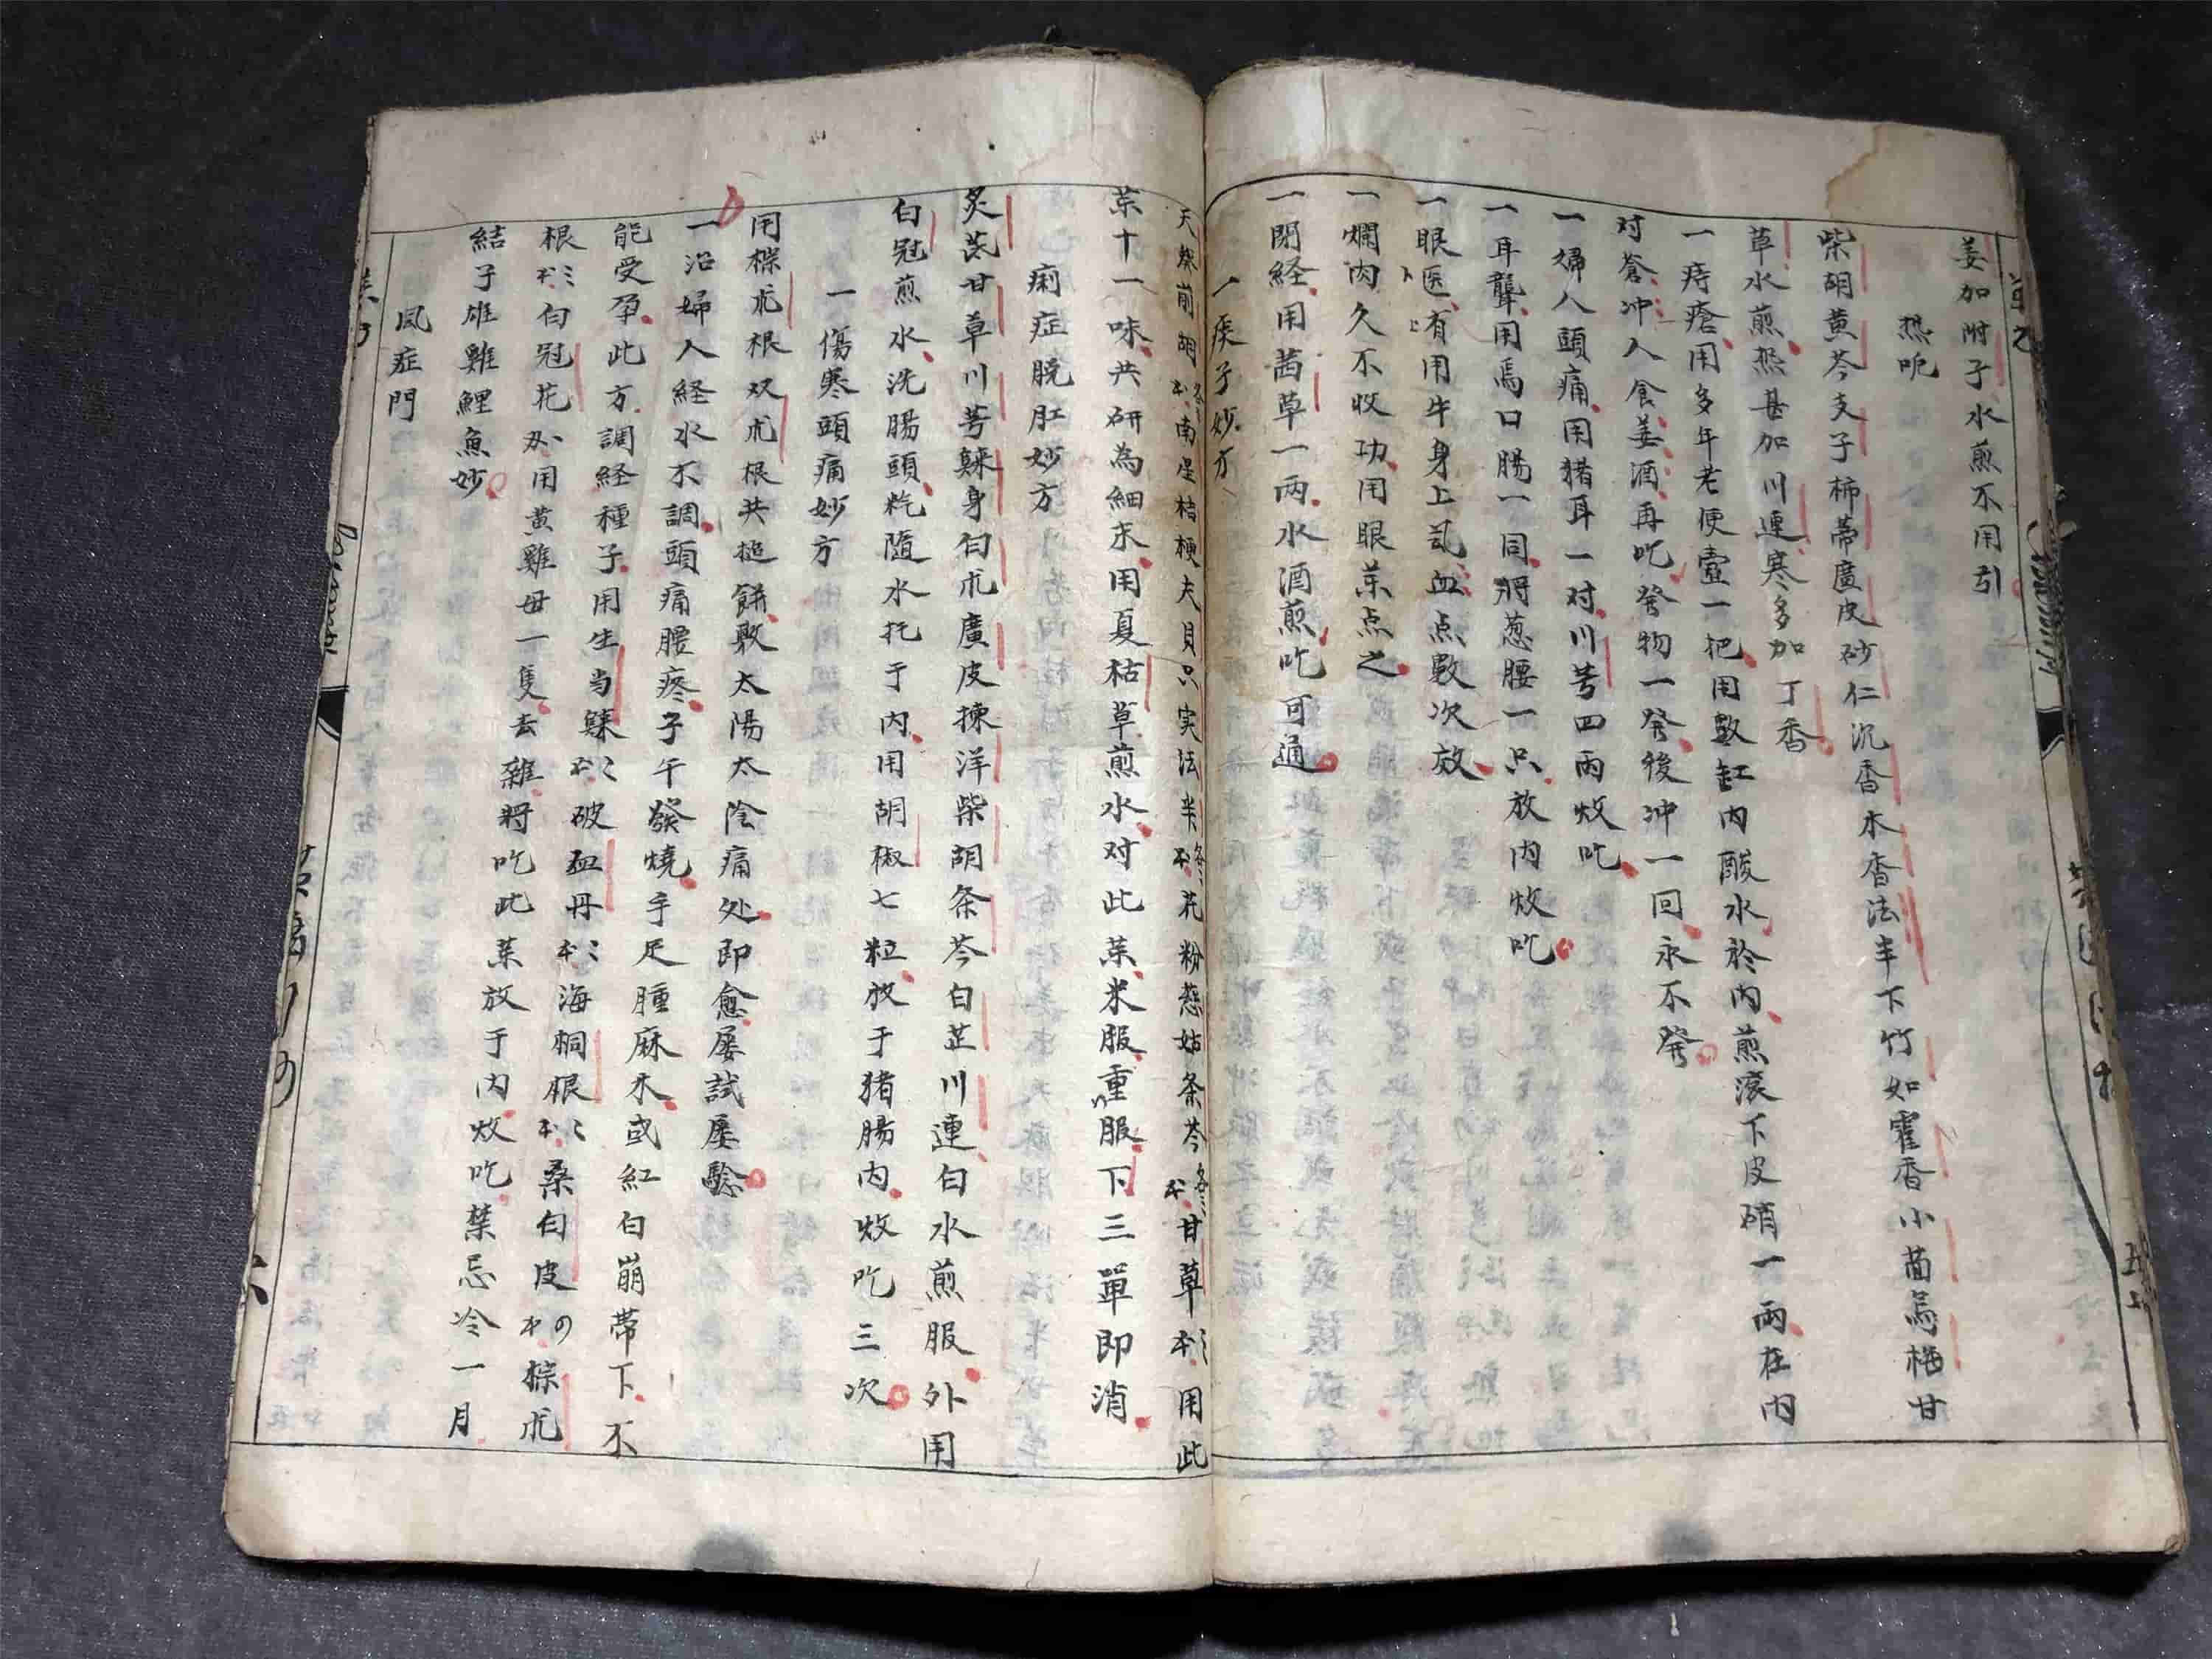 姜加附子水煎不用引
热呃
柴胡黄芩支子柿蒂廣皮砂仁沉香木香法半下竹如霍香小茴烏梅甘
草水煎热甚加川連寒多加丁香
一痔瘡用多年老便壼一把用數缸内酸水於内煎滚下皮硝一兩在内
对瘡冲入食姜酒再吃發物一發後冲一回永不發
一婦人頭痛用猪耳一对川芎四兩炆吃
一耳聾用馬口腸一同將葱腰一只放内炆吃
一眼医有用牛身上虱血点數次效
一爛肉久不收功用眼茶点之
一閉経用茜草一兩水酒煎吃可通
一痰子妙方
天葵前胡各南星桔梗夫貝只実法半各花粉慈姑条芩各甘草用此
茶十一味共研為細末用夏枯草煎水对此茶米服重服下三單即消
痢症脱肛妙方
炙芪甘草川芎歸身白朮廣皮揀洋柴胡条芩白芷川連白水煎服外用
白冠煎水洗腸頭粃隨水托于内用胡椒七粒放于猪腸内炆吃三次
一傷寒頭痛妙方
用檪朮根双朮根共搥餅敷太陽太陰痛处即愈屡試屡驗
一治婦人経水不調頭痛腰疼子午發燒手足腫麻木或紅白崩帶下不
能受孕此方調経種子用生当歸破血丹海桐根桑白皮棕朮
根白冠花用黄雞母一隻去雜將吃此茶放于内炆吃禁忌冷一月
結子雄雞鯉魚妙
風症門